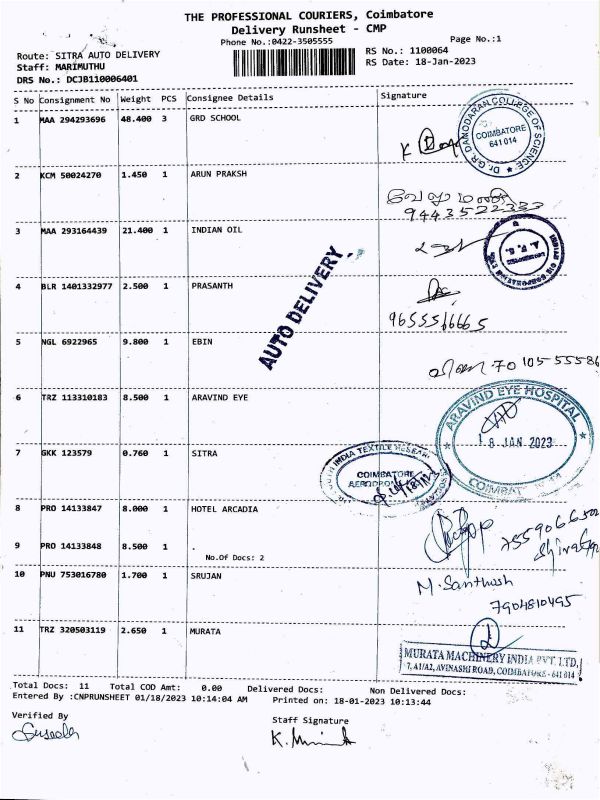 THE PROFESSIONAL COURIERS, Coimbatore
Delivery Runsheet - CMP
Phone No.:0422-3505555
Page No.:1
Route: SITRA AUTO DELIVERY
RS No.: 1100064
Staff: MARIMUTHU
RS Date: 18-Jan-2023
DRS No.: DCJB110006401
S No Consignment No Weight PCS Consignee Details Signature
1 MAA 294293696 48.400 3 GRD SCHOOL
Dr G.R. DAMODARAN COLLEGE OF SCIENCE
COIMBATORE
641 014
2 KCM 50024270 1.450 1 ARUN PRAKSH
9443522333
3 MAA 293164439 21.400 1 INDIAN OIL
AUTO DELIVERY
4 BLR 1401332977 2.500 1 PRASANTH
9655566665
5 NGL 6922965 9.800 1 EBIN
70 105 55586
6 TRZ 113310183 8.500 1 ARAVIND EYE
ARAVIND EYE HOSPITAL
18 JAN 2023
7 GKK 123579 0.760 1 SITRA
COIMBATORE
8 PRO 14133847 8.000 1 HOTEL ARCADIA
9 PRO 14133848 8.500 1 .
No.Of Docs: 2
10 PNU 753016780 1.700 1 SRUJAN
M. Santhosh
7904810495
11 TRZ 320503119 2.650 1 MURATA
MURATA MACHINERY INDIA PVT. LTD,
7, A1/A2, AVINASHI ROAD, COIMBATORE - 641 014
Total Docs: 11 Total COD Amt: 0.00 Delivered Docs: Non Delivered Docs:
Entered By :CNPRUNSHEET 01/18/2023 10:14:04 AM Printed on: 18-01-2023 10:13:44
Verified By
Staff Signature